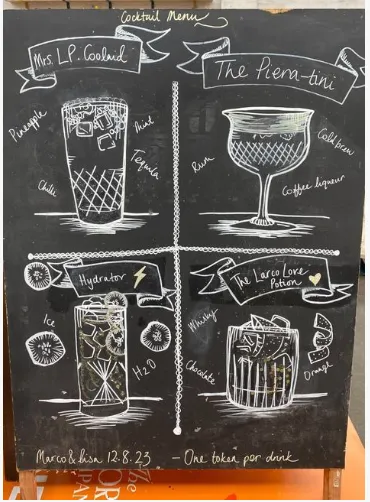 Cocktail Menu
Mrs. L.P. Coolaid
Pineapple
Mint
Tequila
Chilli
The Piera-tini
Cold brew
Rum
Coffee liqueur
Hydrator
Ice
H2O
The Larco Love
Potion
Whisky
Chocolate
Orange
Marco & Lisa 12.8.23 - One token per drink
The